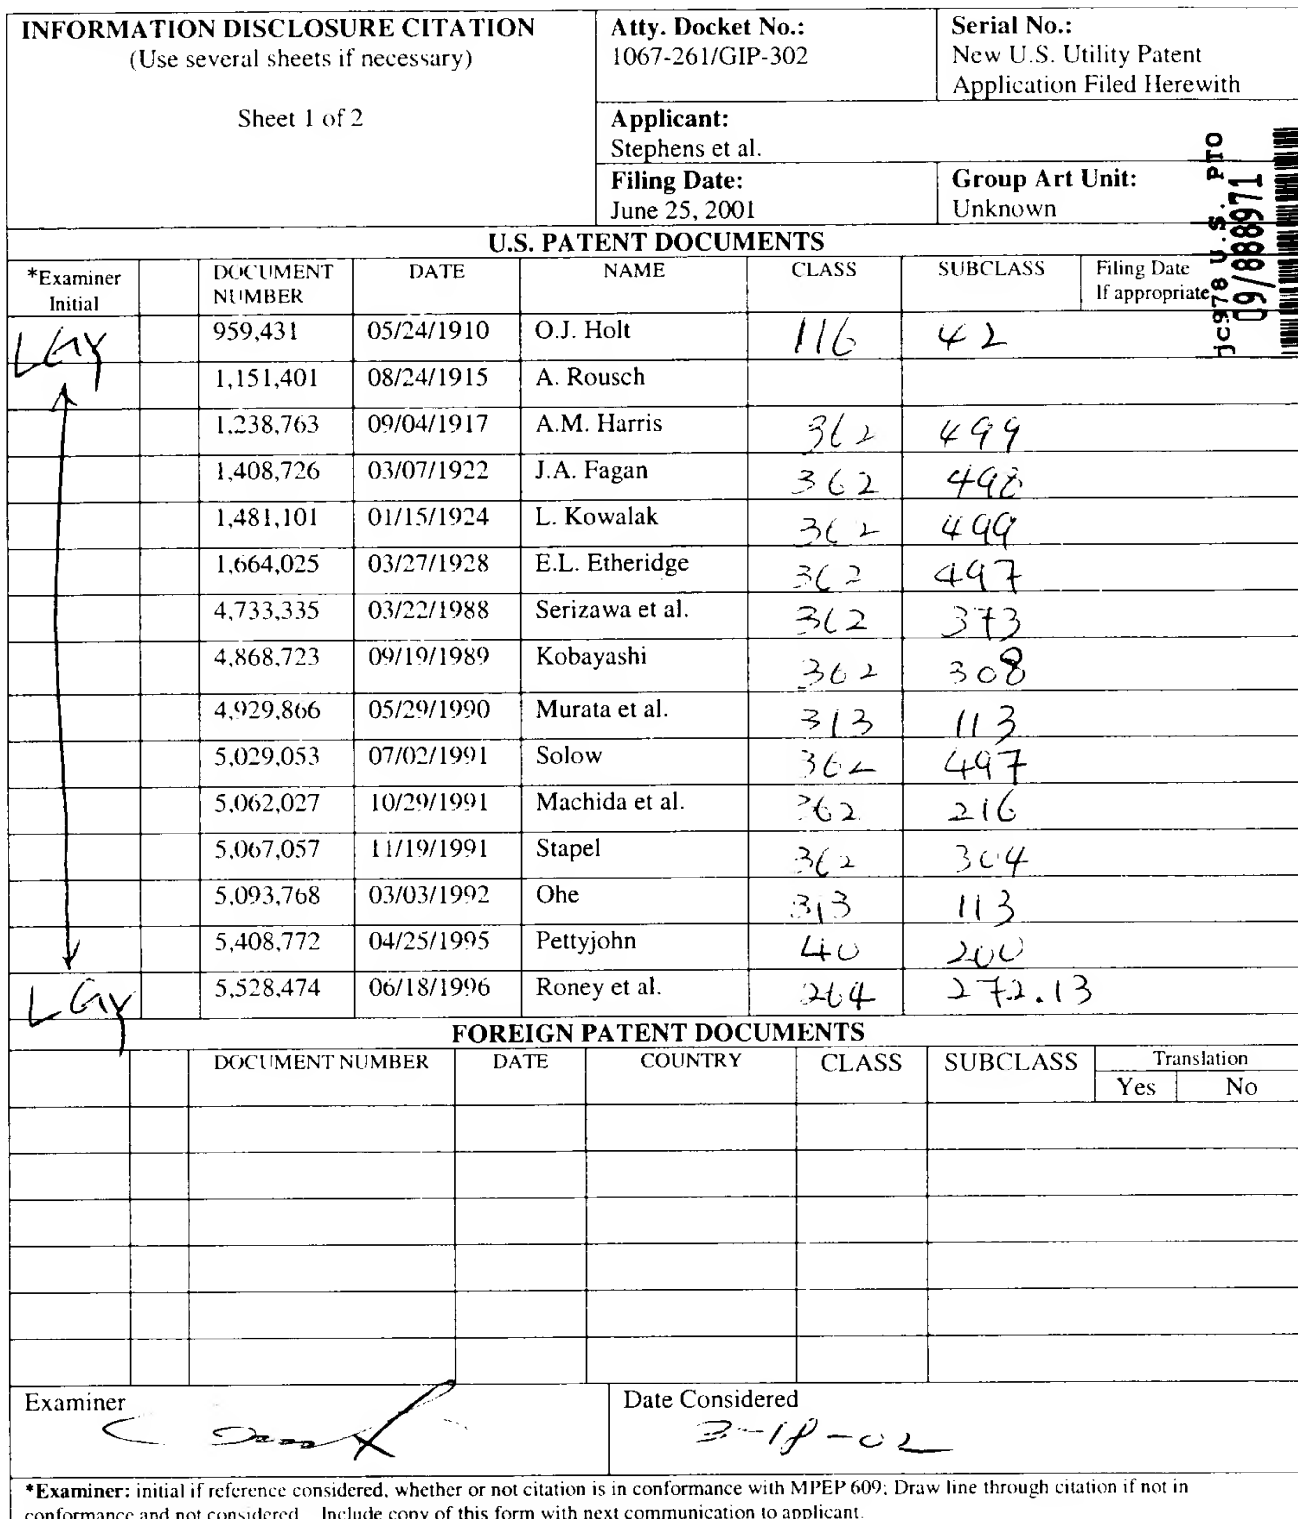 INFORMATION DISCLOSURE CITATION
(Use several sheets if necessary)
Sheet 1 of 2
Atty. Docket No.:
1067-261/GIP-302
Serial No.:
New U.S. Utility Patent
Application Filed Herewith
Applicant:
Stephens et al.
Filing Date:
June 25, 2001
Group Art Unit:
Unknown
jc978 U.S. PTO
09/888971
U.S. PATENT DOCUMENTS
*Examiner Initial DOCUMENT NUMBER DATE NAME CLASS SUBCLASS Filing Date If appropriate
LGY 959,431 05/24/1910 O.J. Holt 116 42
1,151,401 08/24/1915 A. Rousch
1,238,763 09/04/1917 A.M. Harris 362 499
1,408,726 03/07/1922 J.A. Fagan 362 498
1,481,101 01/15/1924 L. Kowalak 362 499
1,664,025 03/27/1928 E.L. Etheridge 362 497
4,733,335 03/22/1988 Serizawa et al. 362 373
4,868,723 09/19/1989 Kobayashi 362 308
4,929,866 05/29/1990 Murata et al. 313 113
5,029,053 07/02/1991 Solow 362 497
5,062,027 10/29/1991 Machida et al. 362 216
5,067,057 11/19/1991 Stapel 362 304
5,093,768 03/03/1992 Ohe 313 113
5,408,772 04/25/1995 Pettyjohn 40 200
LGY 5,528,474 06/18/1996 Roney et al. 264 272.13
FOREIGN PATENT DOCUMENTS
DOCUMENT NUMBER DATE COUNTRY CLASS SUBCLASS Translation
Yes No
Examiner
Date Considered
3-18-02
*Examiner: initial if reference considered, whether or not citation is in conformance with MPEP 609; Draw line through citation if not in
conformance and not considered. Include copy of this form with next communication to applicant.